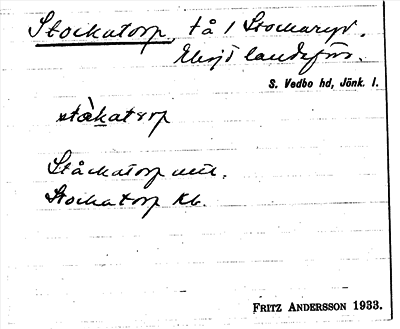 Stockatorp, tå / Stockaryd,
Elmsjö landsförs.
S. Vedbo hd, Jönk. l.
stòkatorp
Ståckatorp utt.
Stockatorp Kb.
FRITZ ANDERSSON 1933.